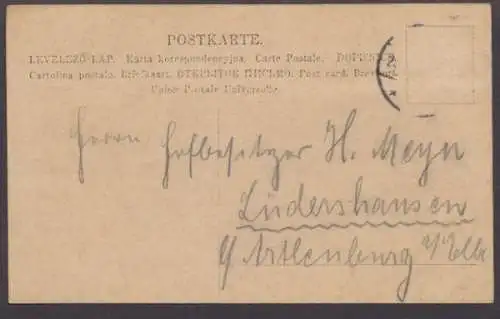 POSTKARTE.
LEVELEZŐ-LAP. Karta korespondencyjna. Carte Postale.
Cartolina postale. Post card.
Union Postale Universelle.
Herrn Hofbesitzer H. Meyn
Lüdershausen
b/Artlenburg a/Elbe